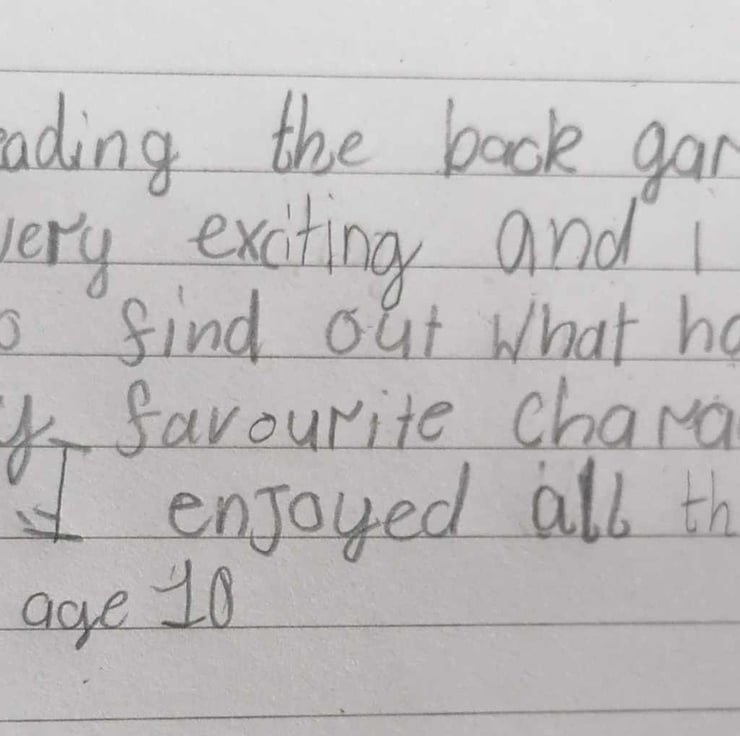 eading the back gar
very exciting and i
o find out what ha
y favourite chara
I enjoyed all th
age 10